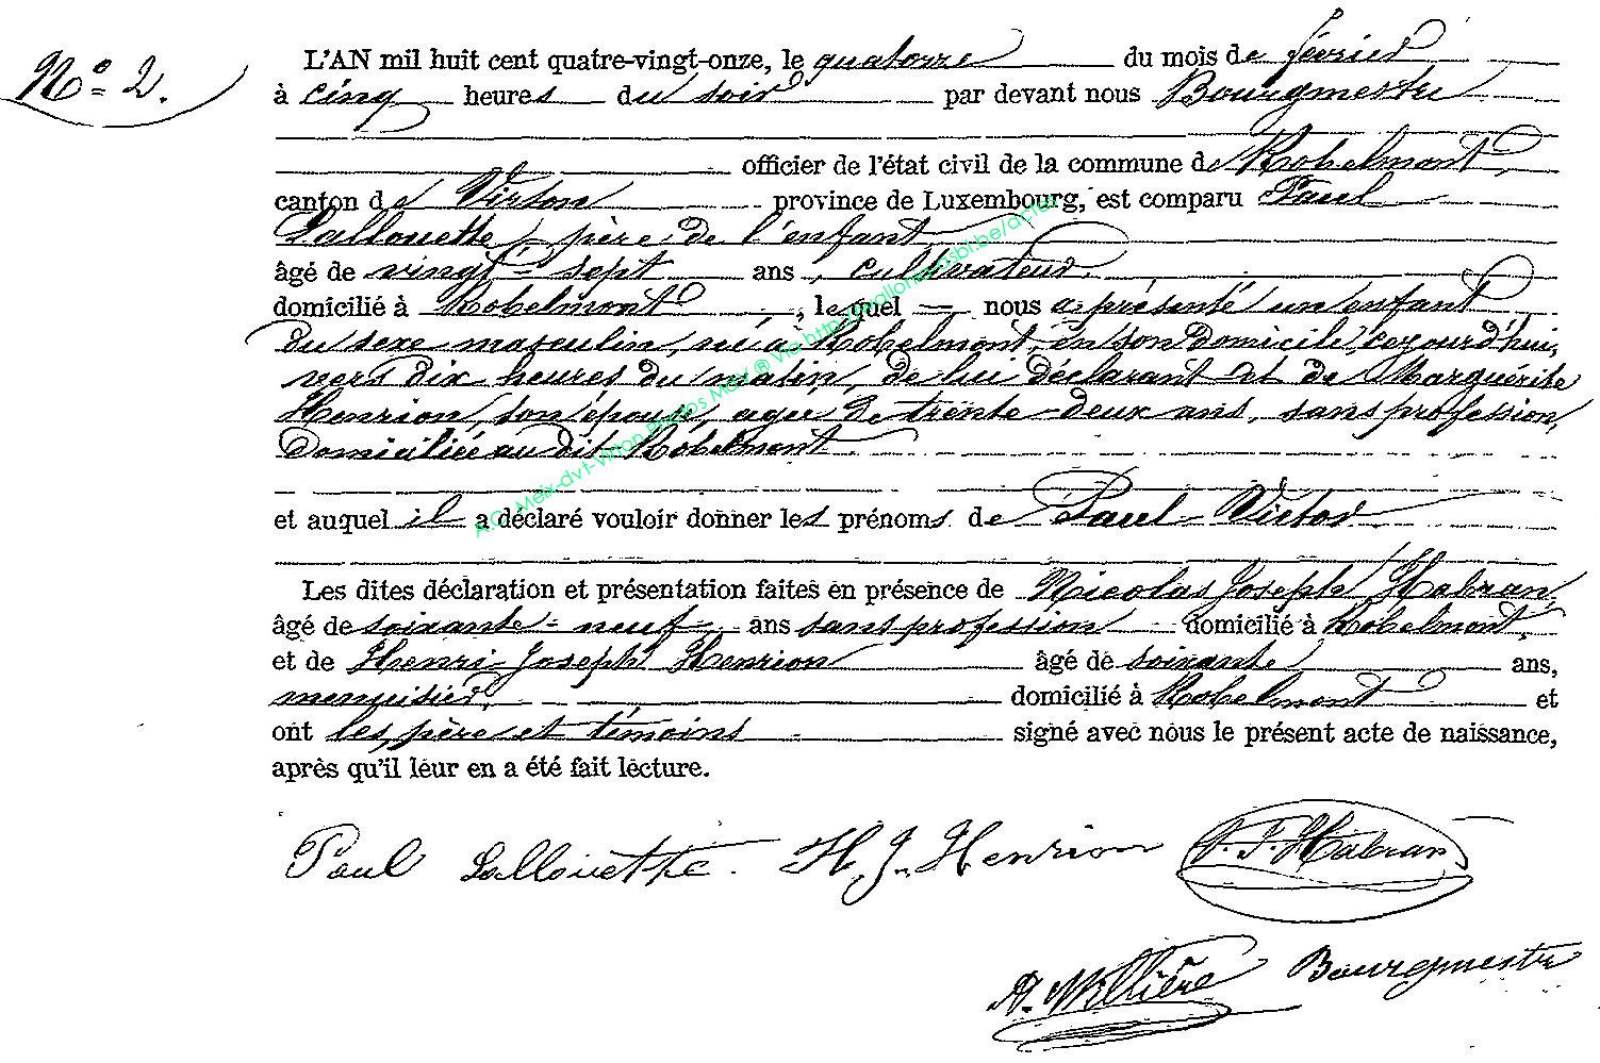 N° 2.
L'AN mil huit cent quatre-vingt-onze, le quatorze du mois de février
à cinq heures du soir par devant nous Bourgmestre
officier de l'état civil de la commune de Robelmont,
canton de Virton province de Luxembourg, est comparu Paul
Lallouette, père de l'enfant,
âgé de vingt-sept ans, cultivateur,
domicilié à Robelmont, lequel nous a présenté un enfant
du sexe masculin, né à Robelmont, en son domicile, cejourd'hui,
vers dix heures du matin, de lui déclarant et de Marguérite
Henrion, son épouse, agée de trente-deux ans, sans profession,
domiciliée au dit Robelmont.
et auquel il a déclaré vouloir donner les prénoms de Paul-Victor.
Les dites déclaration et présentation faites en présence de Nicolas Joseph Habran,
âgé de soixante-neuf ans sans profession domicilié à Robelmont,
et de Henri-Joseph Henrion âgé de soixante ans,
menuisier, domicilié à Robelmont et
ont les père et témoins signé avec nous le présent acte de naissance,
après qu'il leur en a été fait lecture.
Paul Lallouette. H. J. Henrion Habran
A. Willière Bourgmestre
A.C. Meix-dvt-Virton Photos MdW ® Via http://wallonia.asbl.be/actes